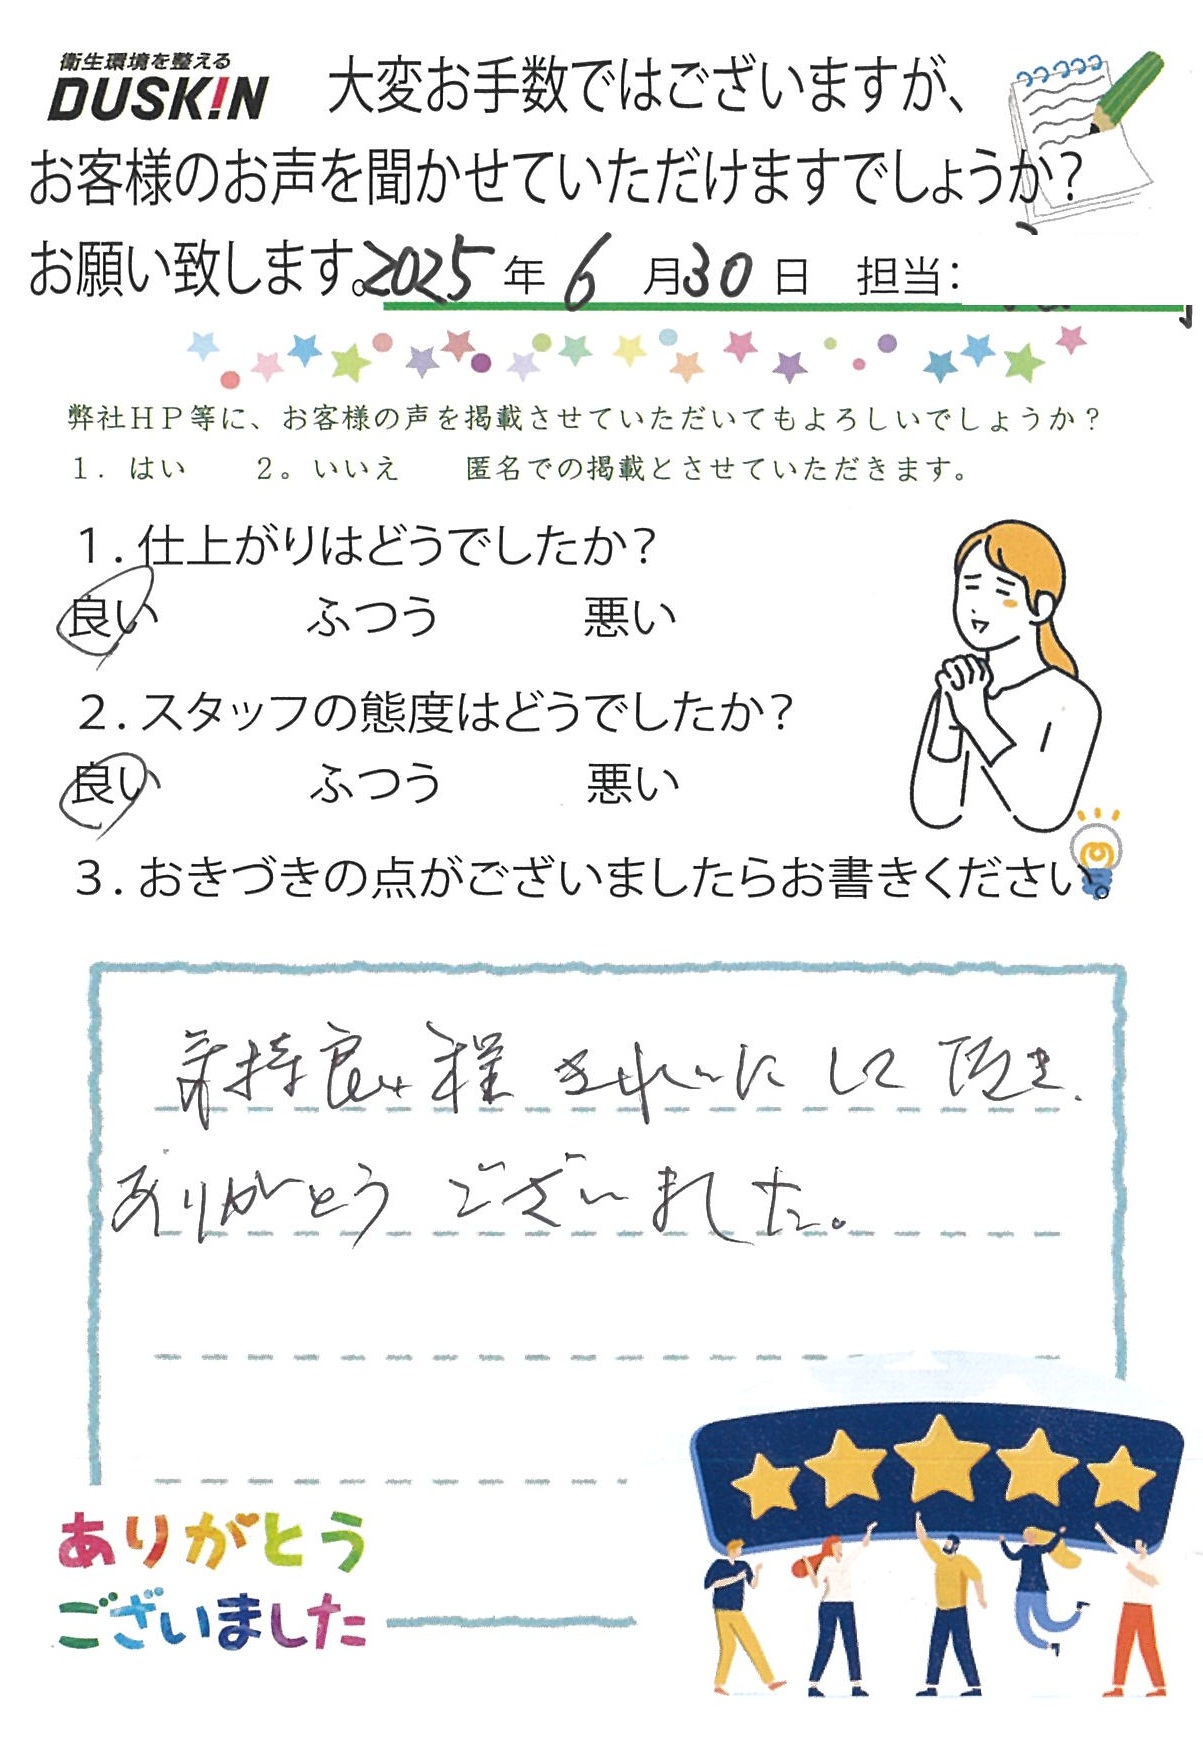 衛生環境を整える
DUSK!N
大変お手数ではございますが、
お客様のお声を聞かせていただけますでしょうか?
お願い致します。2025年6月30日 担当:
弊社HP等に、お客様の声を掲載させていただいてもよろしいでしょうか?
1. はい 2。いいえ 匿名での掲載とさせていただきます。
1.仕上がりはどうでしたか?
良い ふつう 悪い
2.スタッフの態度はどうでしたか?
良い ふつう 悪い
3.おきづきの点がございましたらお書きください。
気持良い程 きれいにして頂き、
ありがとうございました。
ありがとう
ございました